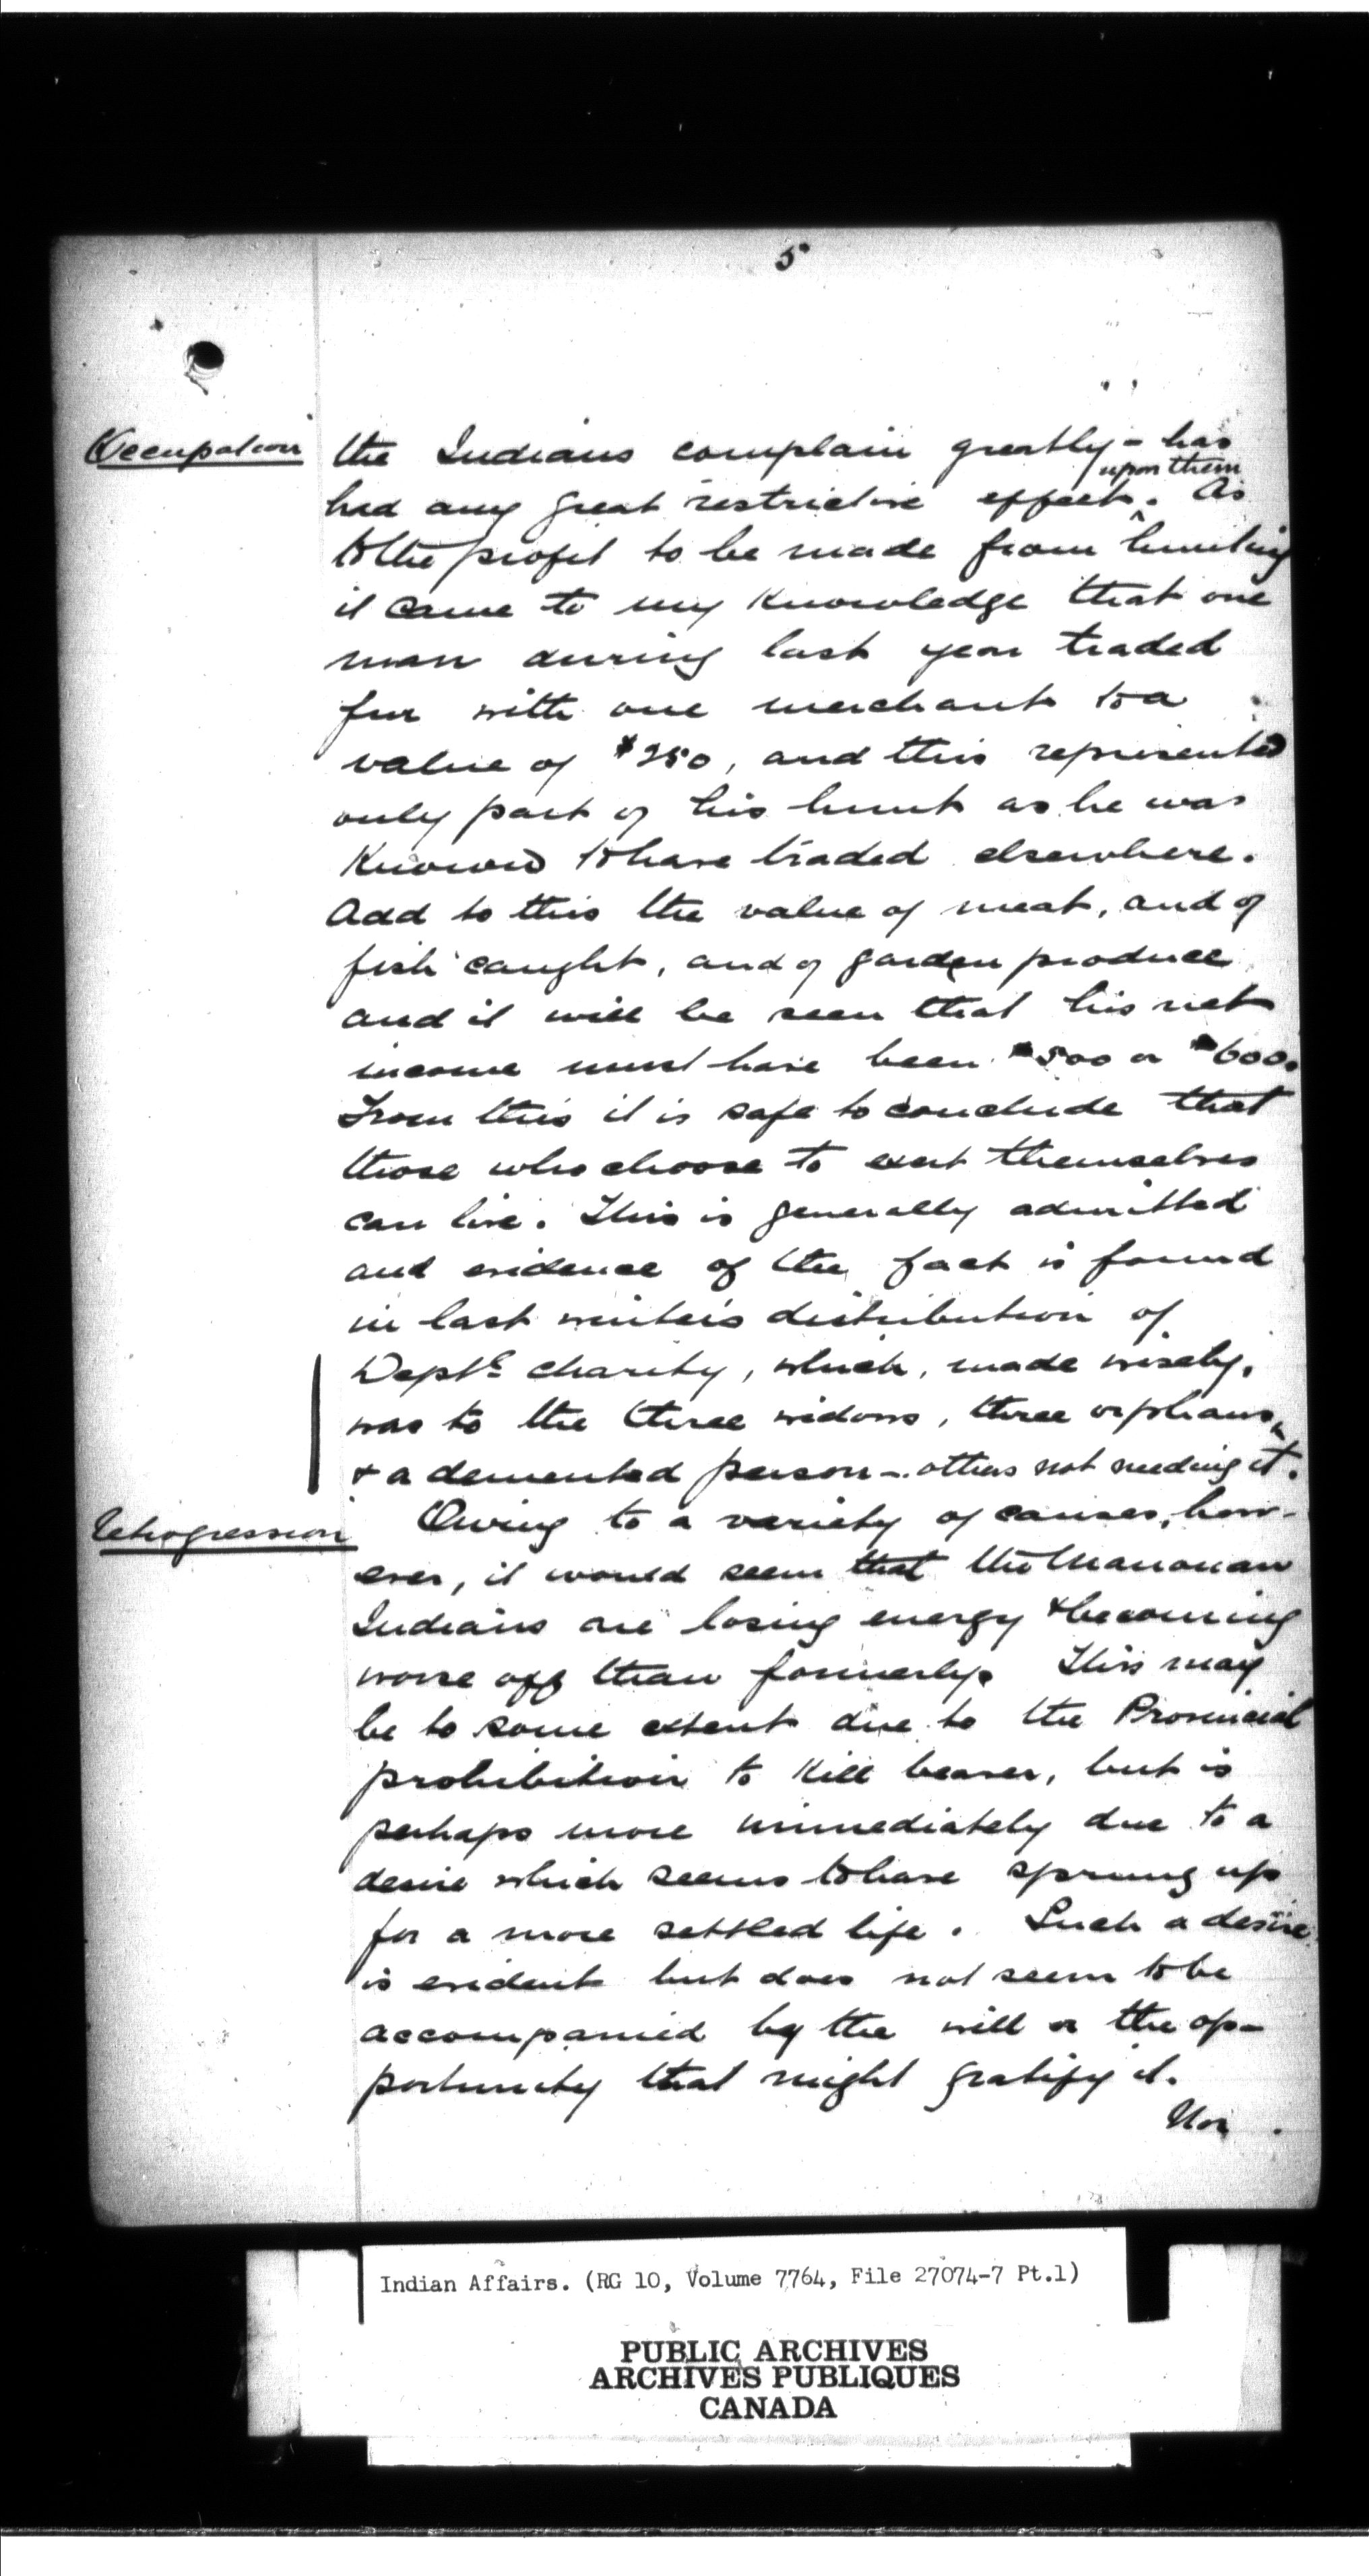 5
Occupation
the Indians complain greatly - has
had any great restrictive effect upon them. As
to the profit to be made from hunting
it came to my knowledge that one
man during last year traded
fur with one merchant to a
value of $250, and this represented
only part of his hunt as he was
known to have traded elsewhere.
Add to this the value of meat, and of
fish caught, and of garden produce
and it will be seen that his net
income must have been $500 or $600.
From this it is safe to conclude that
those who choose to exert themselves
can live. This is generally admitted
and evidence of the fact is found
in last winter's distribution of
Deptl charity, which, made wisely,
was to the three widows, three orphans,
& a demented person - others not needing it.
Retrogression
Owing to a variety of causes, how-
ever, it would seem that the Manouan
Indians are losing energy & becoming
worse off than formerly. This may
be to some extent due to the Provincial
prohibition to kill beaver, but is
perhaps more immediately due to a
desire which seems to have sprung up
for a more settled life. Such a desire
is evident but does not seem to be
accompanied by the will or the op-
portunity that might gratify it.
Nor
Indian Affairs. (RG 10, Volume 7764, File 27074-7 Pt.1)
PUBLIC ARCHIVES
ARCHIVES PUBLIQUES
CANADA